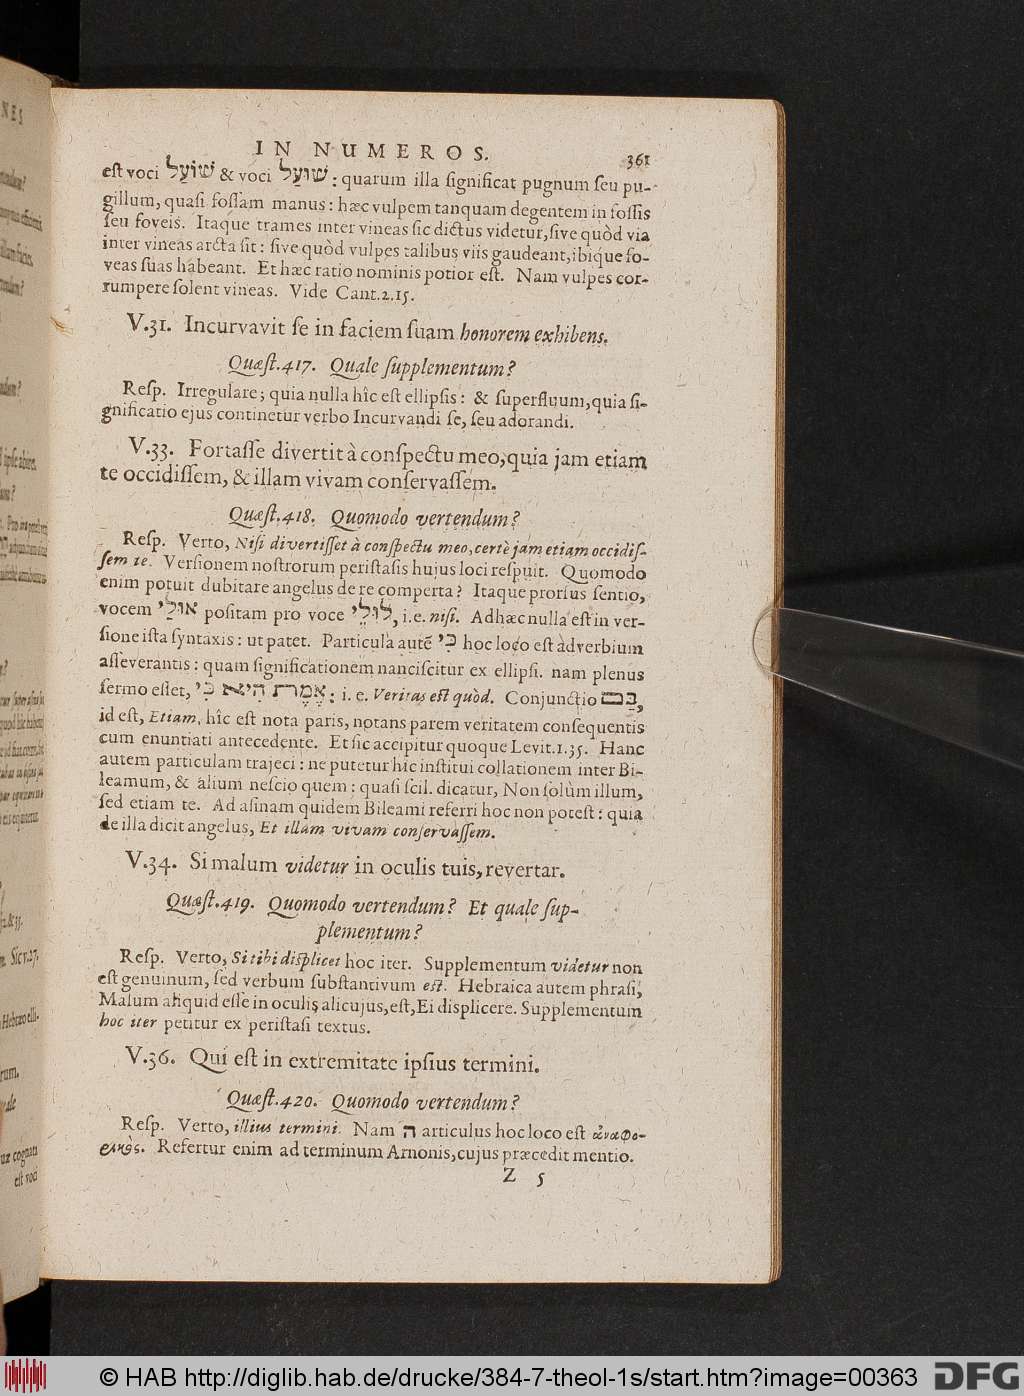 IN NUMEROS. 361
est voci שׁוֹעַל & voci שׁוּעַל : quarum illa significat pugnum seu pu-
gillum, quasi fossam manus : hæc vulpem tanquam degentem in fossis
seu foveis. Itaque trames inter vineas sic dictus videtur, sive quòd via
inter vineas arcta sit : sive quòd vulpes talibus viis gaudeant, ibique fo-
veas suas habeant. Et hæc ratio nominis potior est. Nam vulpes cor-
rumpere solent vineas. Vide Cant.2.15.
V.31. Incurvavit se in faciem suam honorem exhibens.
Quæst.417. Quale supplementum?
Resp. Irregulare; quia nulla hîc est ellipsis: & superfluum, quia si-
gnificatio ejus continetur verbo Incurvandi se, seu adorandi.
V.33. Fortasse divertit à conspectu meo, quia jam etiam
te occidissem, & illam vivam conservassem.
Quæst.418. Quomodo vertendum?
Resp. Verto, Nisi divertisset à conspectu meo, certè jam etiam occidis-
sem te. Versionem nostrorum peristasis hujus loci respuit. Quomodo
enim potuit dubitare angelus de re comperta? Itaque prorsus sentio,
vocem אוּלַי positam pro voce לוּלֵי, i.e. nisi. Adhæc nulla est in ver-
sione ista syntaxis: ut patet. Particula autē כִּי hoc loco est adverbium
asseverantis : quam significationem nanciscitur ex ellipsi. nam plenus
sermo esset, אֱמֶת הִיא כִּי : i. e. Veritas est quòd. Conjunctio גַּם,
id est, Etiam, hîc est nota paris, notans parem veritatem consequentis
cum enuntiati antecedente. Et sic accipitur quoque Levit.1.35. Hanc
autem particulam trajeci : ne putetur hîc institui collationem inter Bi-
leamum, & alium nescio quem : quasi scil. dicatur, Non solùm illum,
sed etiam te. Ad asinam quidem Bileami referri hoc non potest : quia
de illa dicit angelus, Et illam vivam conservassem.
V.34. Si malum videtur in oculis tuis, revertar.
Quæst.419. Quomodo vertendum? Et quale sup-
plementum?
Resp. Verto, Si tibi displicet hoc iter. Supplementum videtur non
est genuinum, sed verbum substantivum est. Hebraica autem phrasi,
Malum aliquid esse in oculis alicujus, est, Ei displicere. Supplementum
hoc iter petitur ex peristasi textus.
V.36. Qui est in extremitate ipsius termini.
Quæst.420. Quomodo vertendum?
Resp. Verto, illius termini. Nam ה articulus hoc loco est ἀναφο-
ρικός. Refertur enim ad terminum Arnonis, cujus præcedit mentio.
Z 5
© HAB http://diglib.hab.de/drucke/384-7-theol-1s/start.htm?image=00363
DFG